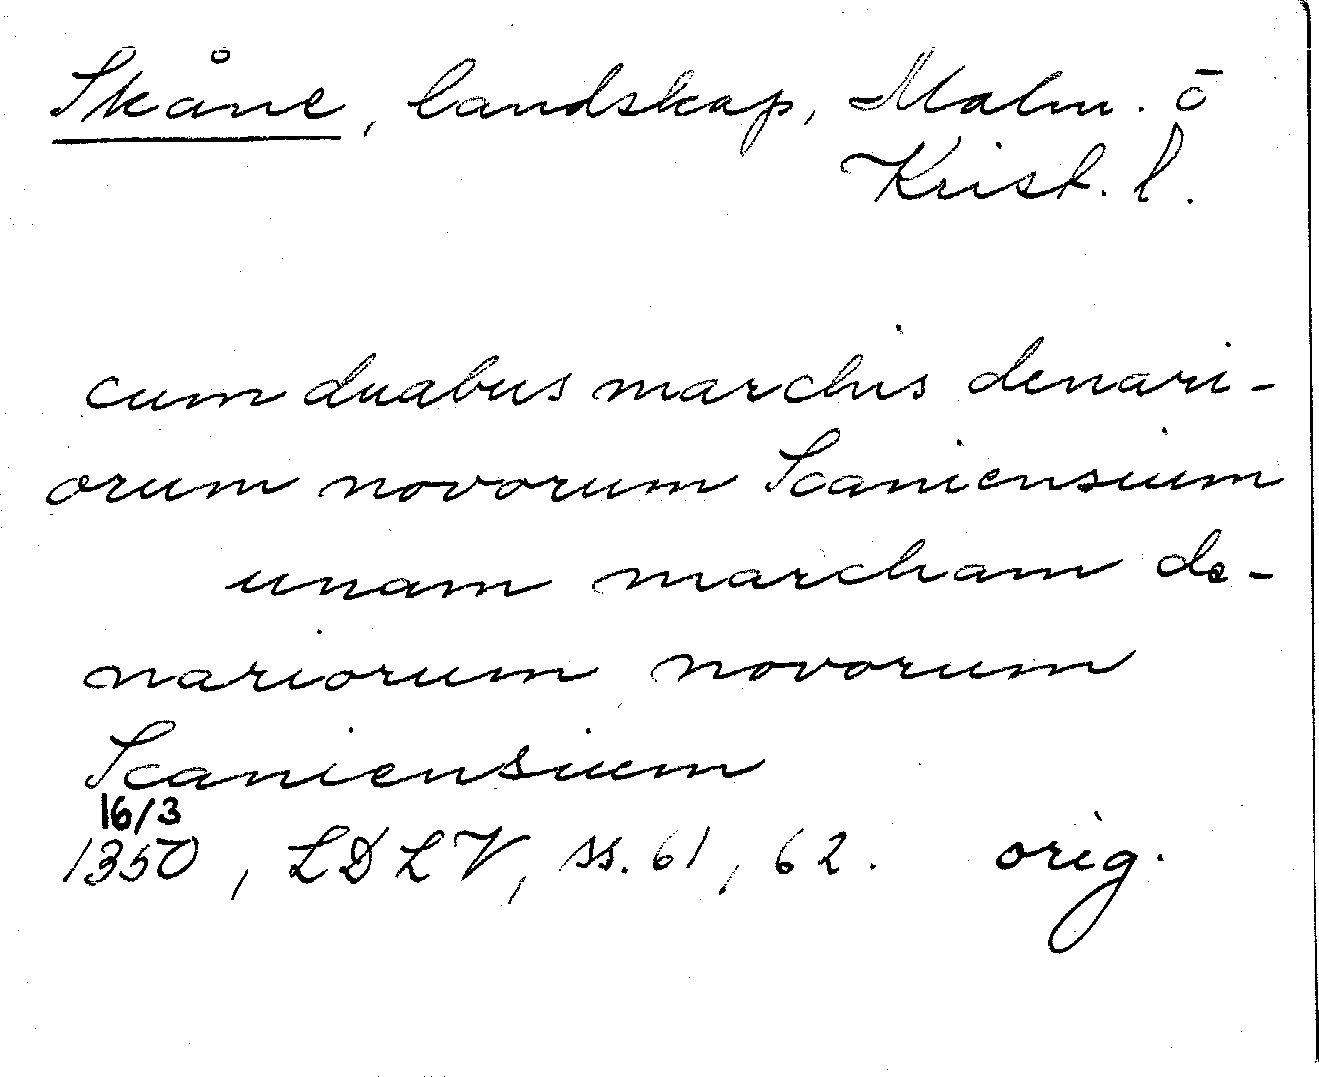 Skåne, landskap, Malm. ō
Krist. l.
cum duabus marchis denari-
orum novorum Scaniensium
unam marcham de-
nariorum novorum
Scaniensium
16/3
1350, LDLV, ss. 61, 62. orig.